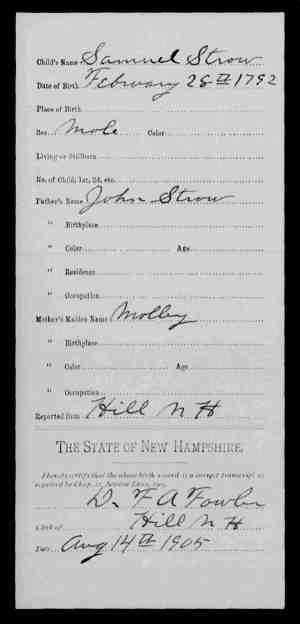 Child's Name Samuel Strow
Date of Birth February 28th 1792
Place of Birth
Sex Male Color
Living or Stillborn
No. of Child, 1st, 2d, etc.
Father's Name John Strow
" Birthplace
" Color Age
" Residence
" Occupation
Mother's Maiden Name Molley
" Birthplace
" Color Age
" Occupation
Reported from Hill N H
THE STATE OF NEW HAMPSHIRE.
I hereby certify that the above birth record is a correct transcript as
required by Chap. 21, Session Laws, 1905.
D. F A Fowler
Clerk of Hill N. H.
Date Aug 14th 1905